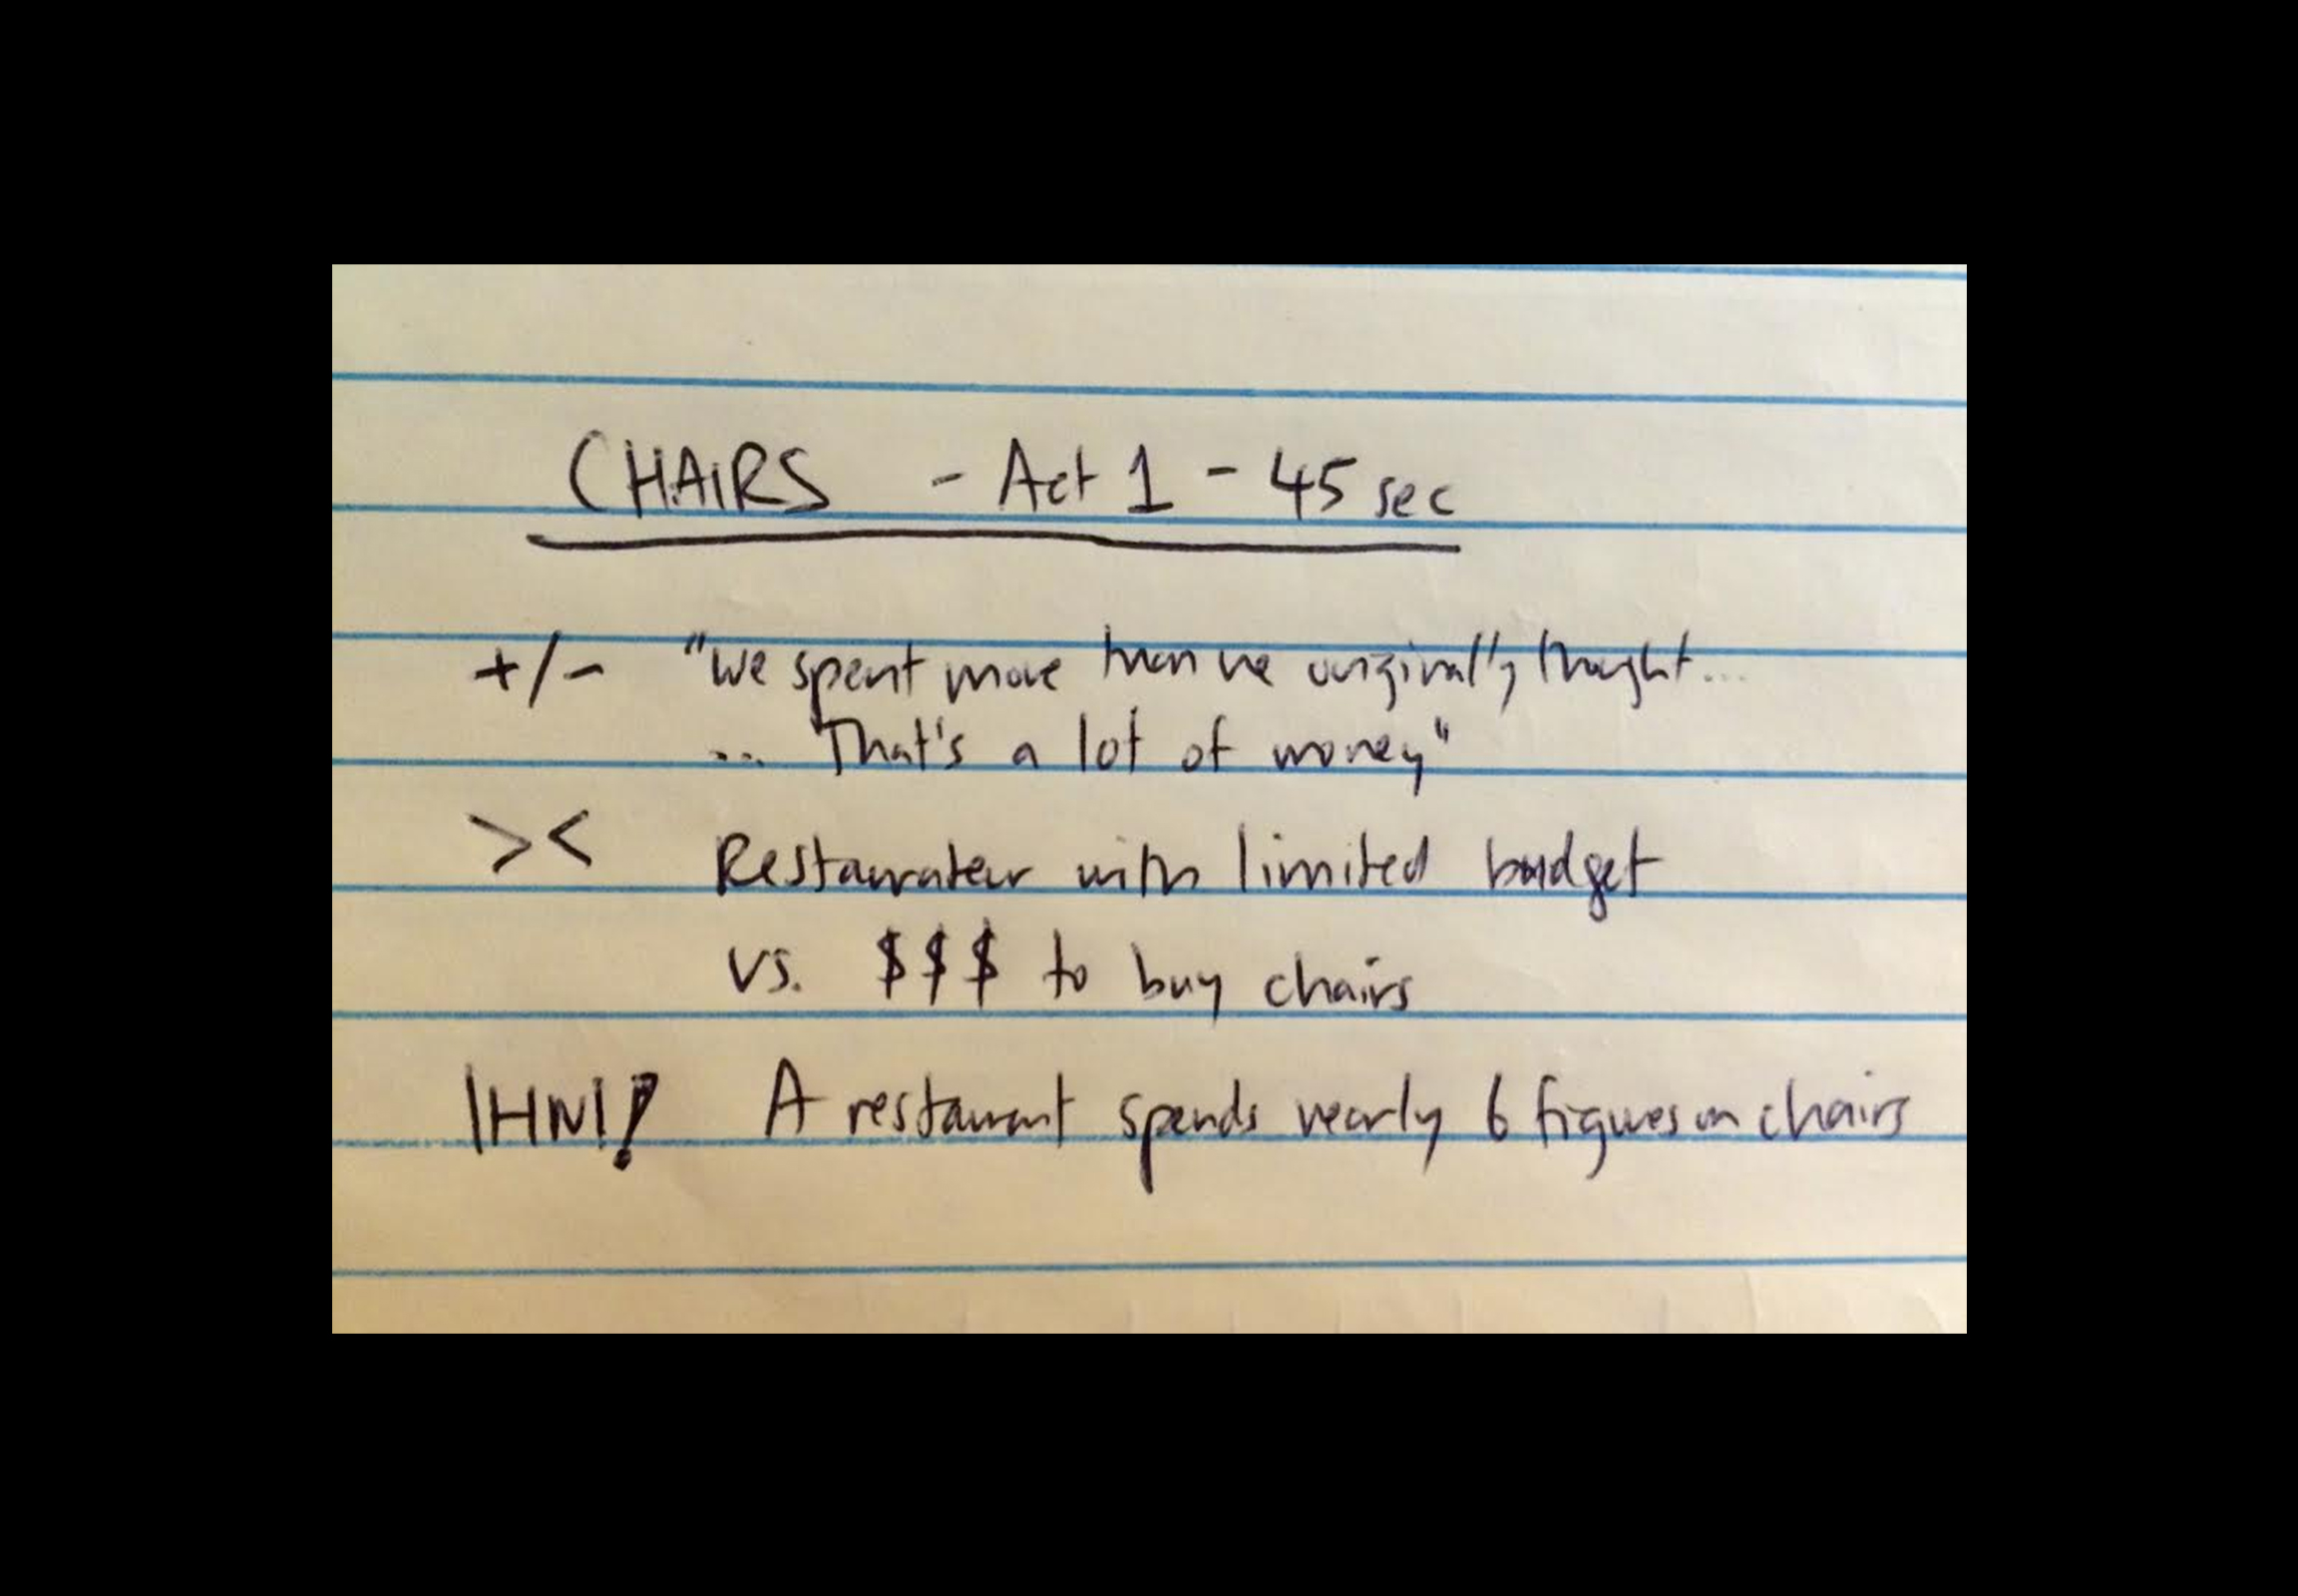 CHAIRS - Act 1 - 45 sec
+/- "We spent more than we originally thought...
... That's a lot of money"
>< Restaurateur with limited budget
vs. $$$ to buy chairs
IHN! A restaurant spends nearly 6 figures on chairs